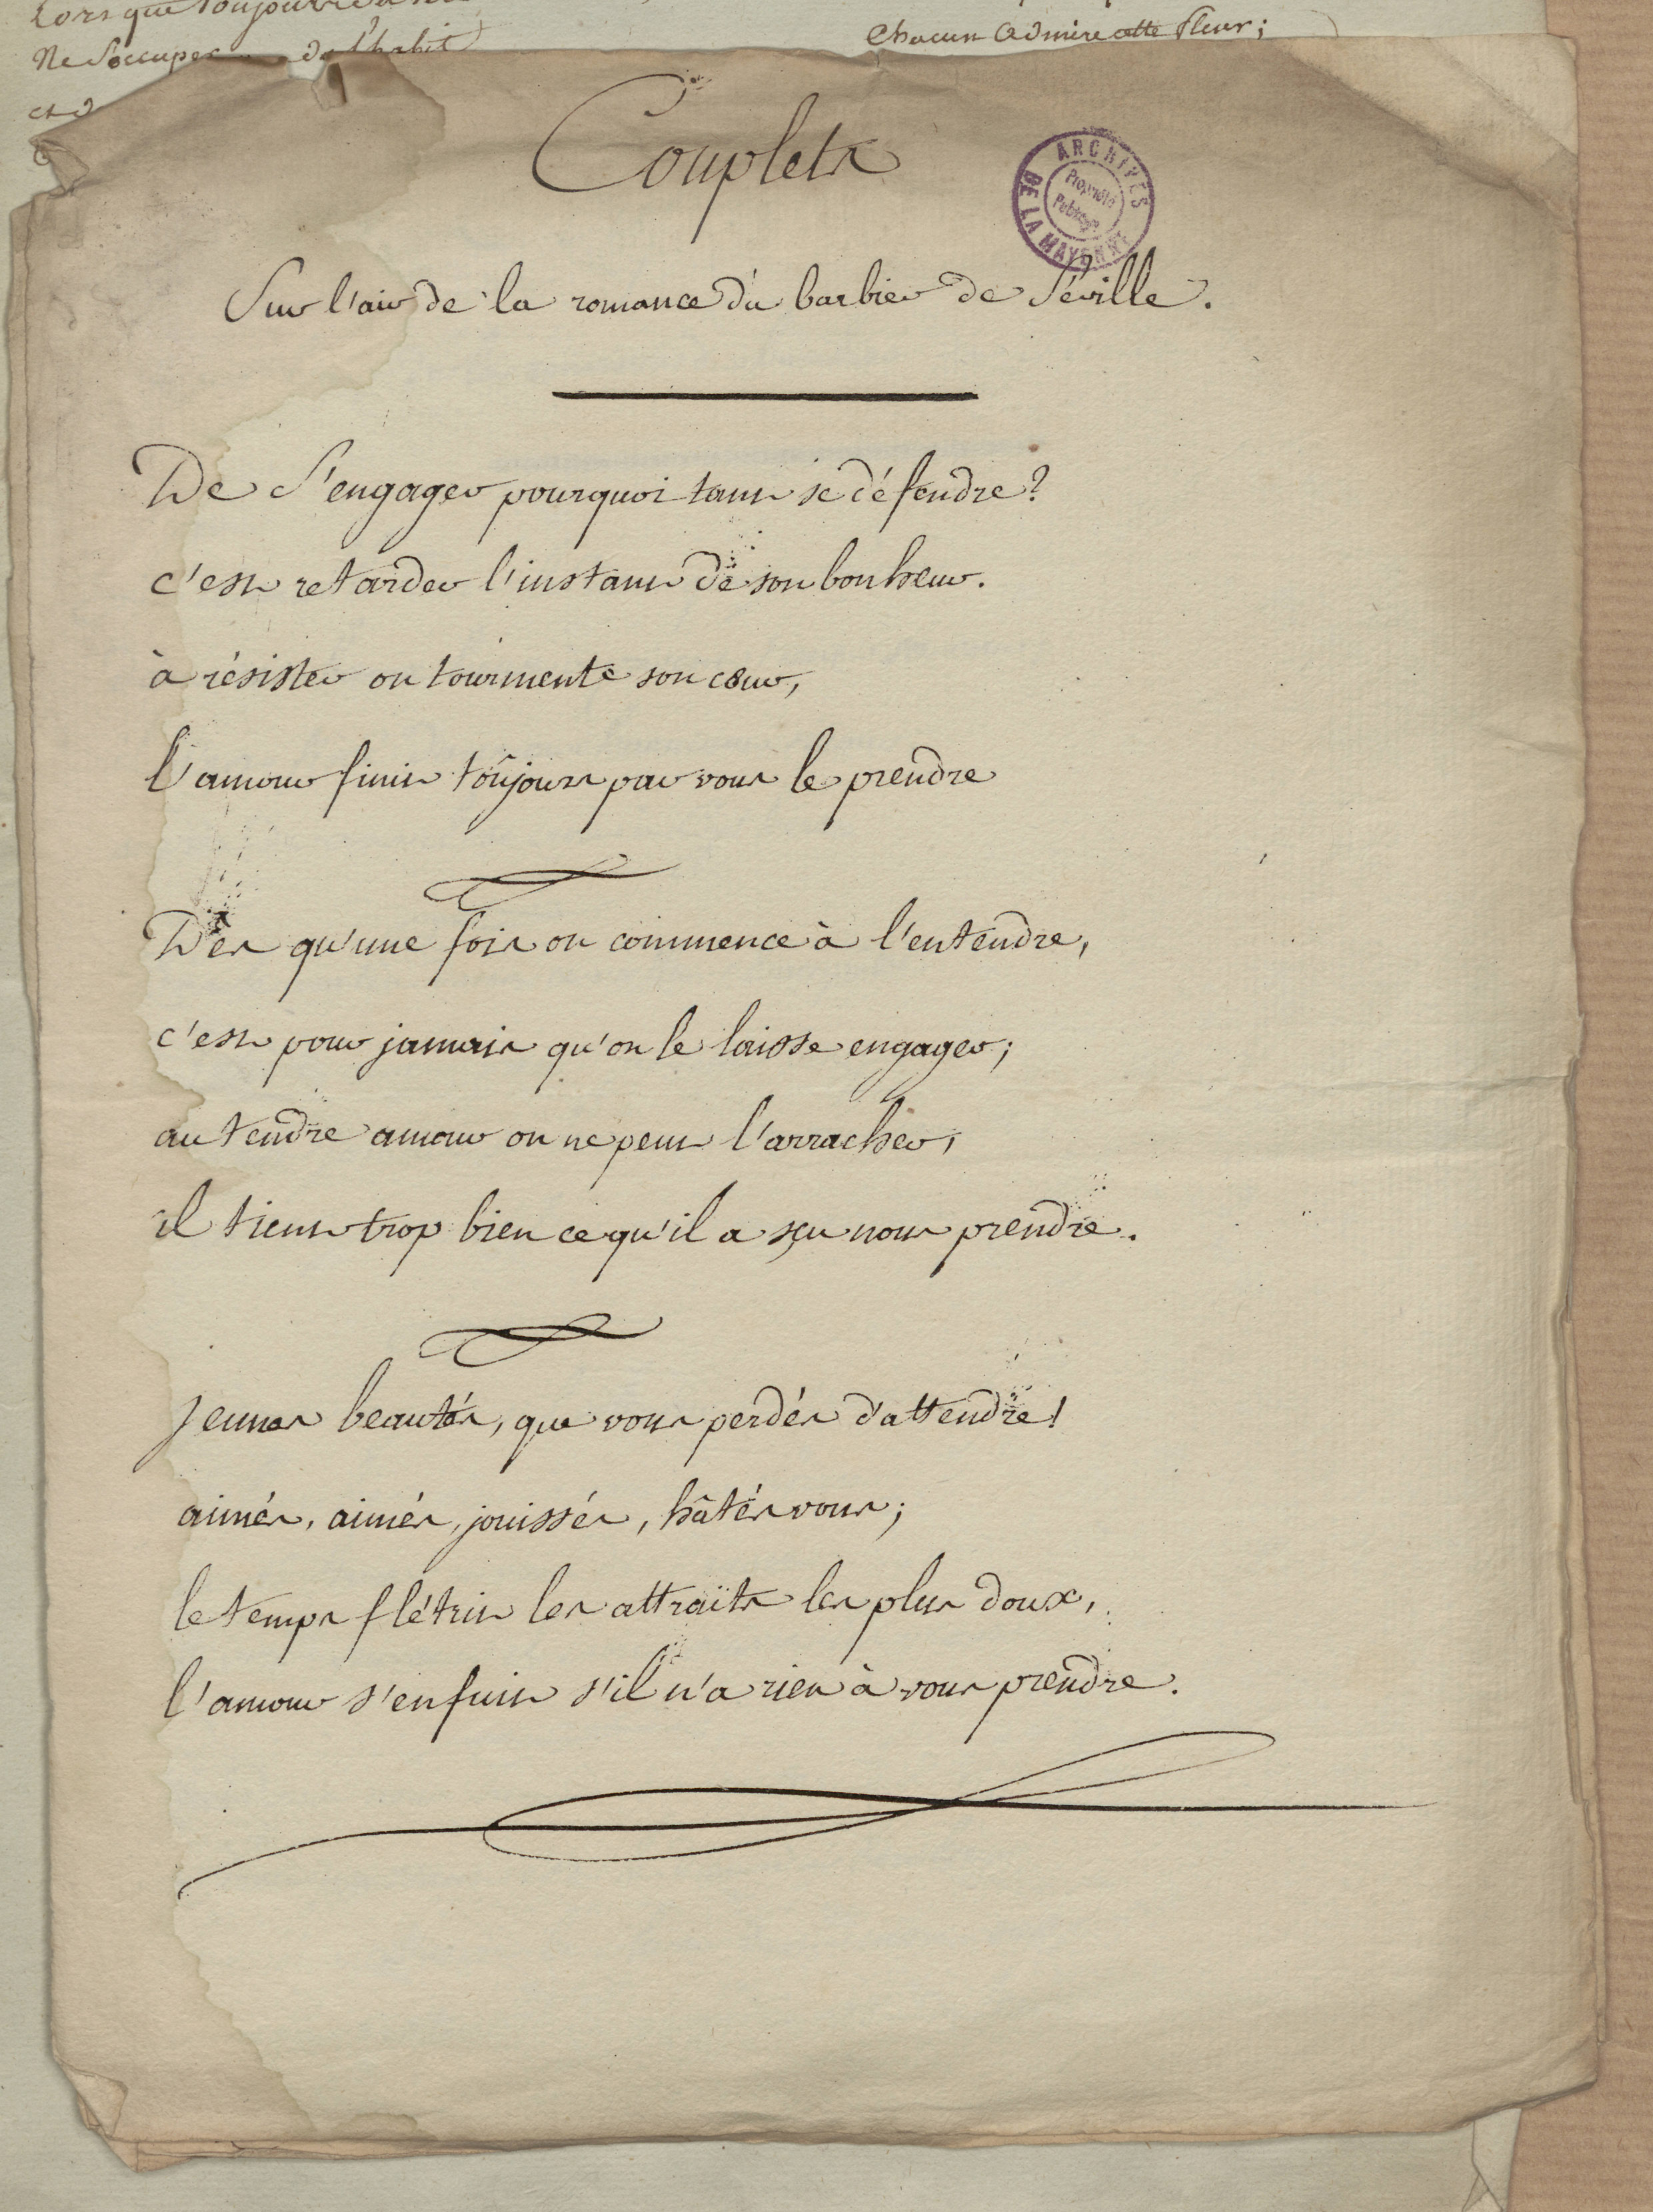 Lorsque toujours
Ne s'occuper de l'habit
Chacun admire cette fleur;
et d
Couplets
ARCHIVES DE LA MAYENNE
Propriété Publique
Sur l'air de la romance du barbier de Séville.
De s'engager pourquoi tant se défendre?
c'est retarder l'instant de son bonheur.
à résister on tourmente son cœur,
l'amour finit toûjours par vous le prendre
Dès qu'une fois on commence à l'entendre,
c'est pour jamais qu'on le laisse engager;
au tendre amour on ne peut l'arracher,
il tient trop bien ce qu'il a sçu nous prendre.
Jeunes beautés, que vous perdés d'attendre!
aimés, aimés, jouissés, hâtés vous;
le temps flétrit les attraits les plus doux,
l'amour s'enfuit s'il n'a rien à vous prendre.